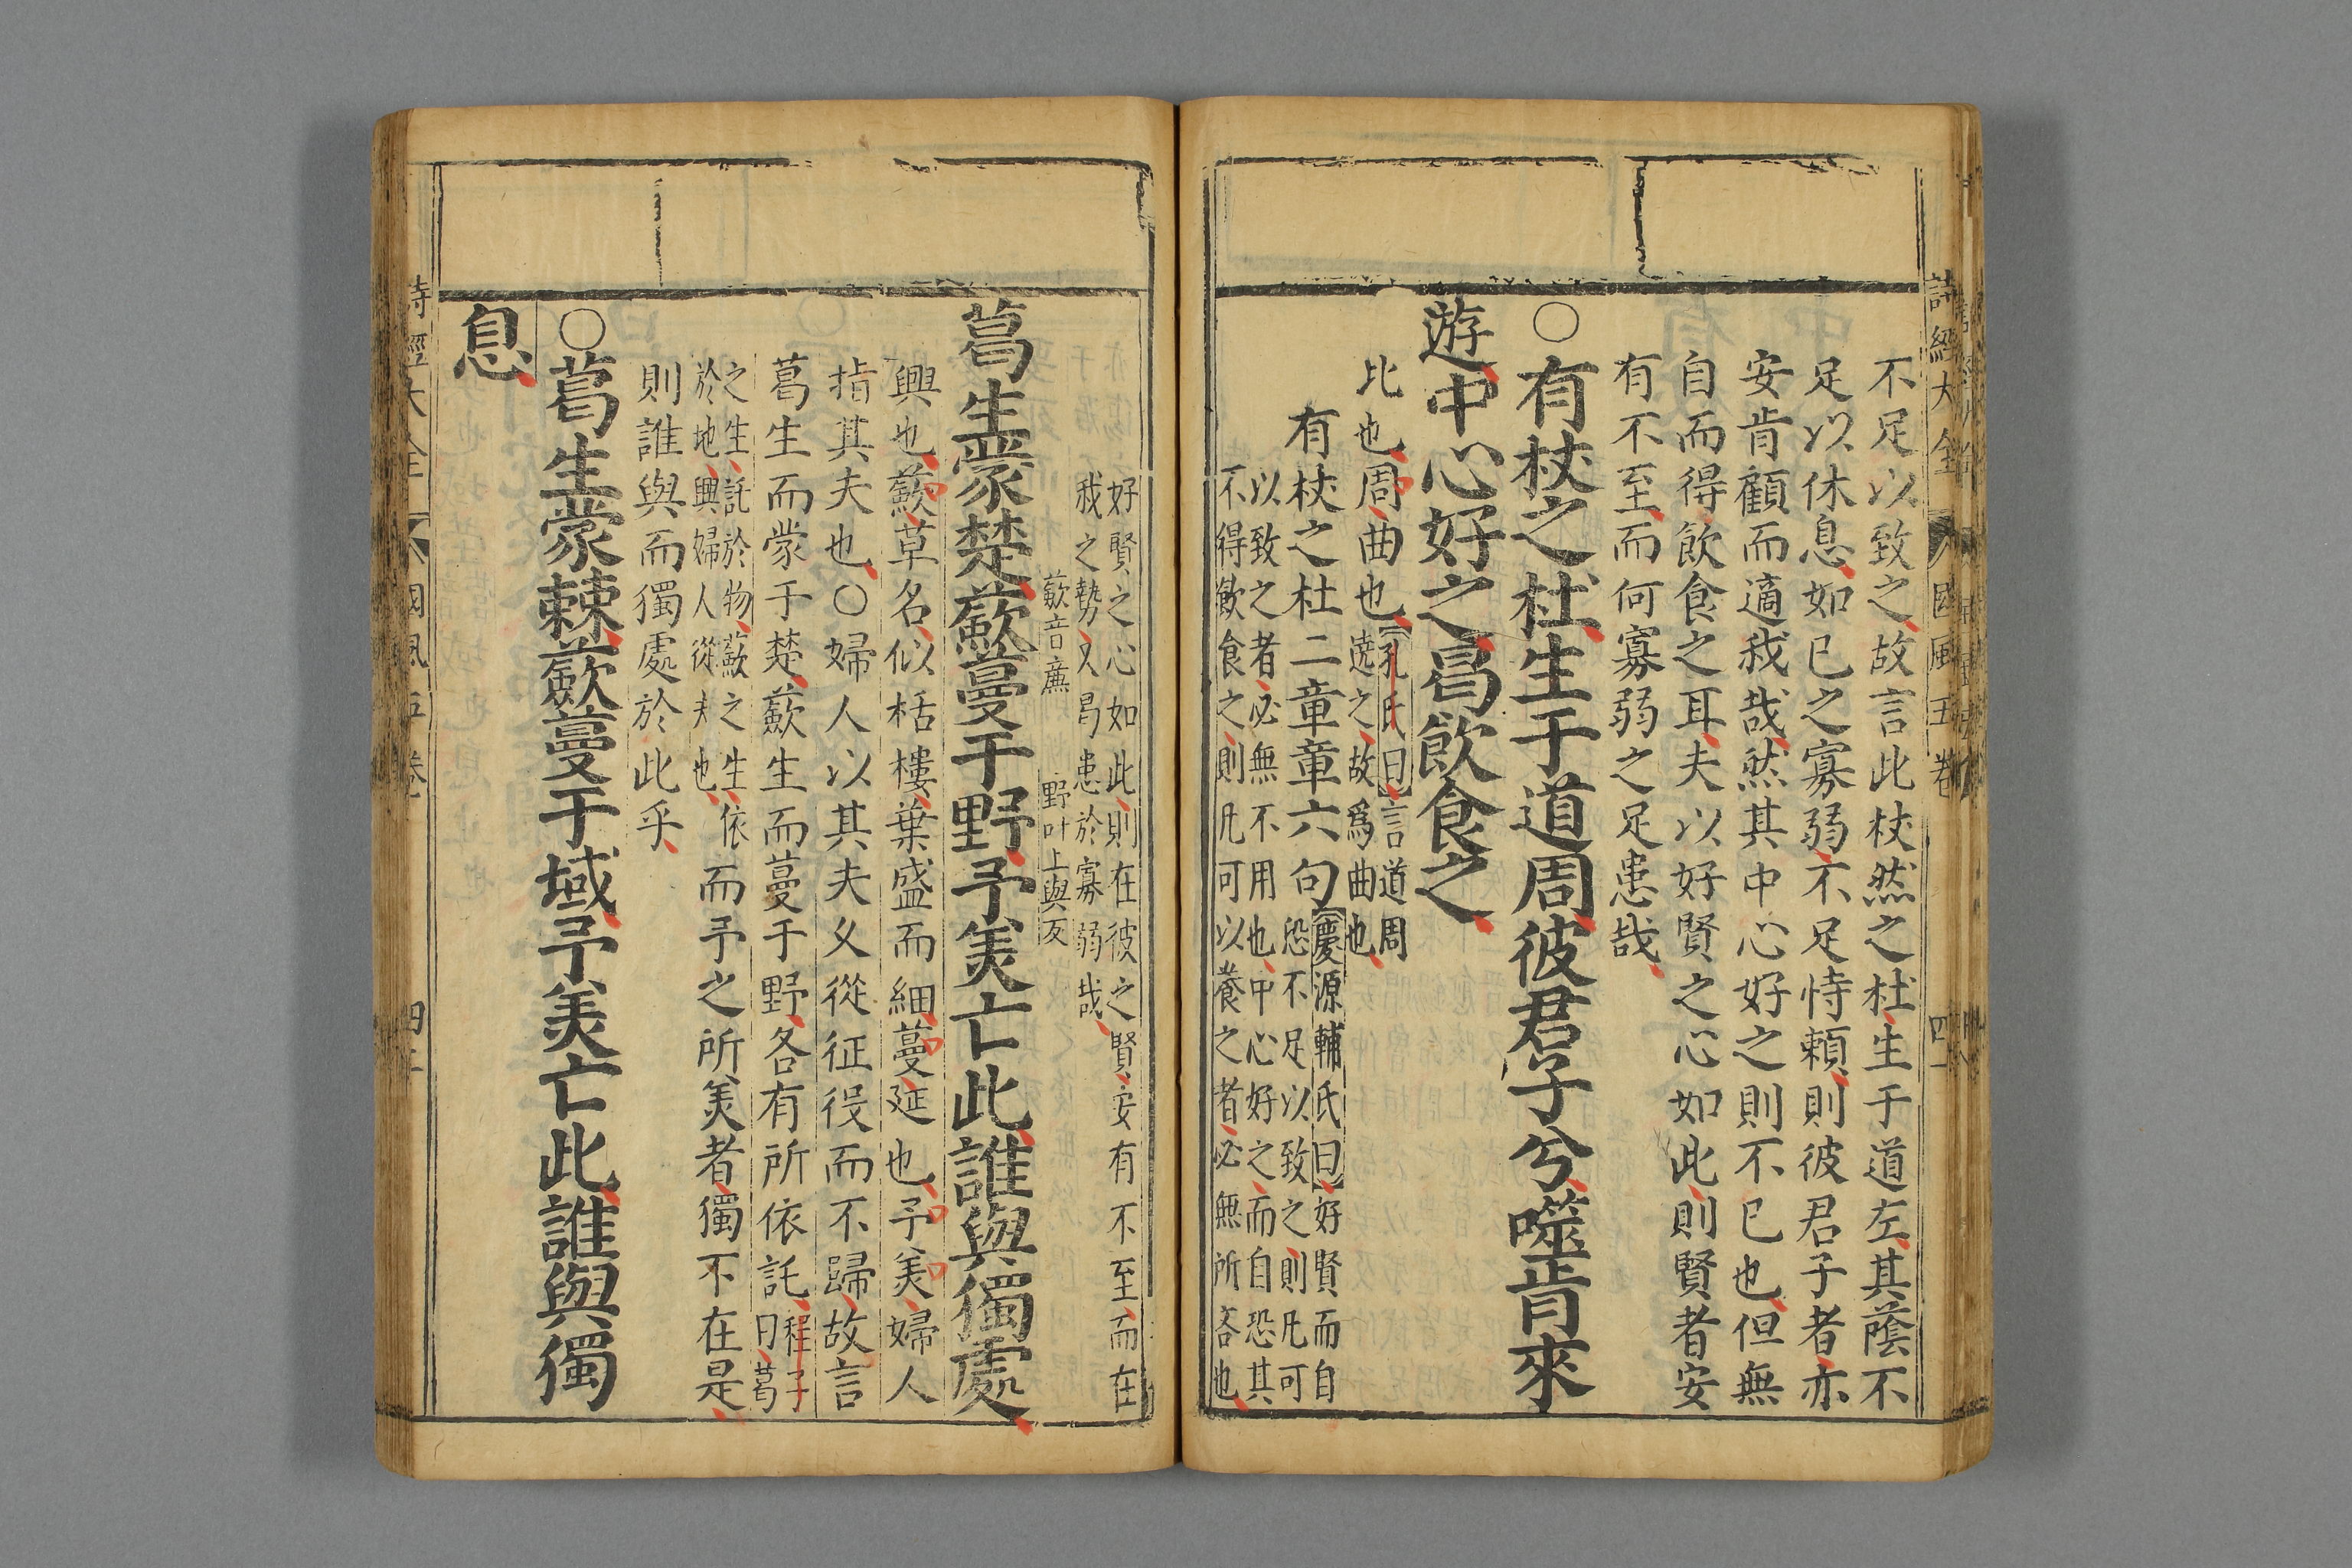 不足以致之故言此杕然之杜生于道左其蔭不
足以休息如已之寡弱不足恃賴則彼君子者亦
安肯顧而適我哉然其中心好之則不已也但無
自而得飲食之耳夫以好賢之心如此則賢者安
有不至而何寡弱之足患哉
○有杕之杜生于道周彼君子兮噬肯來
遊中心好之曷飲食之
比也周曲也
孔氏曰言道周
遶之故爲曲也
有杕之杜二章章六句
慶源輔氏曰好賢而自
恐不足以致之則凡可
以致之者必無不用也中心好之而自恐其
不得飲食之則凡可以養之者必無所吝也
好賢之心如此則在彼之賢安有不至而在
我之勢又曷患於寡弱哉
葛生蒙楚蘞蔓于野予美亡此誰與獨處
蘞音廉
野叶上與反
興也蘞草名似栝樓葉盛而細蔓延也予美婦人
指其夫也○婦人以其夫久從征役而不歸故言
葛生而蒙于楚蘞生而蔓于野各有所依託
程子
曰葛
之生託於物蘞之生依
於地興婦人從夫也
而予之所美者獨不在是
則誰與而獨處於此乎
○葛生蒙棘蘞蔓于域予美亡此誰與獨
息
詩經大全
國風五卷